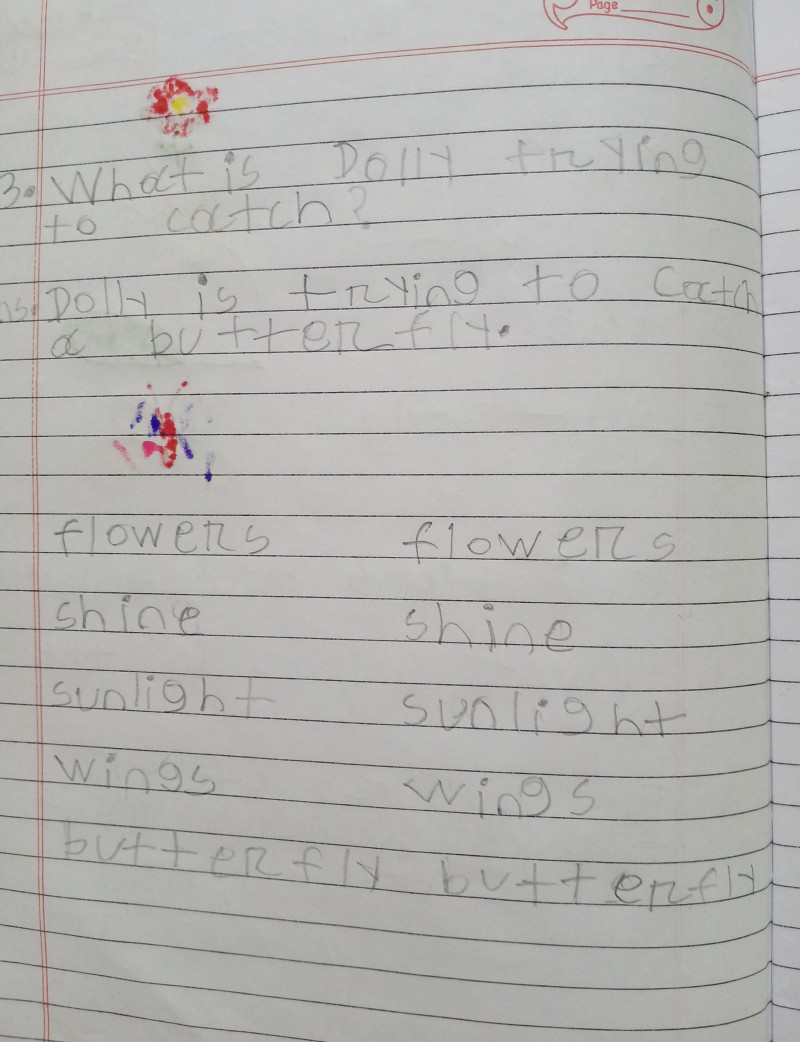 Page
3. What is Dolly trying
to catch?
ns. Dolly is trying to catch
a butterfly.
flowers flowers
shine shine
sunlight sunlight
wings wings
butterfly butterfly